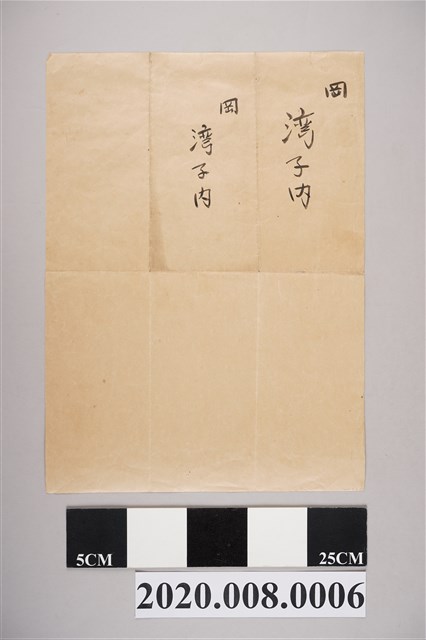 岡
湾子内
岡
湾子内
5CM 25CM
2020.008.0006